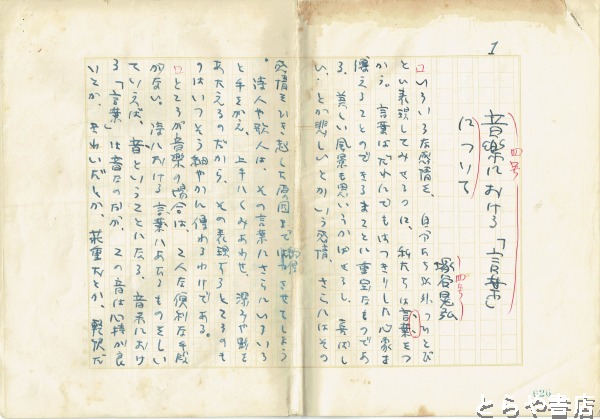 1
四号
音楽における「言葉」
について
四号
塚谷晃弘
いろいろな感情を、自分たち以外のひとび
とに表現してみせるのに、私たちは言葉をつ
かう。言葉はだれにでもはっきりした心象を
傳えることのできるまことに重宝なものであ
る。美しい風景も思いうかばせるし、喜ばし
い、とか悲しいとかいう感情、さらにはその
感情をひき起した原因まで
させてしまう
。詩人や歌人は、その言葉にさらにいろいろ
と手をかえ、上手にくみあわせ、深みや
を
あたえるのだから、その表現するところのも
のはいっそう細やかに傳わるわけである。
ところが音楽の場合は、こんな便利な手段
がない。詩における言葉にあたるものをしい
ていえば、音ということになる。音楽におけ
る「言葉」は音なのだが、この音は心持が良
いとか、きれいだとか、荘重だとか、軽快だ
F26
とらや書店